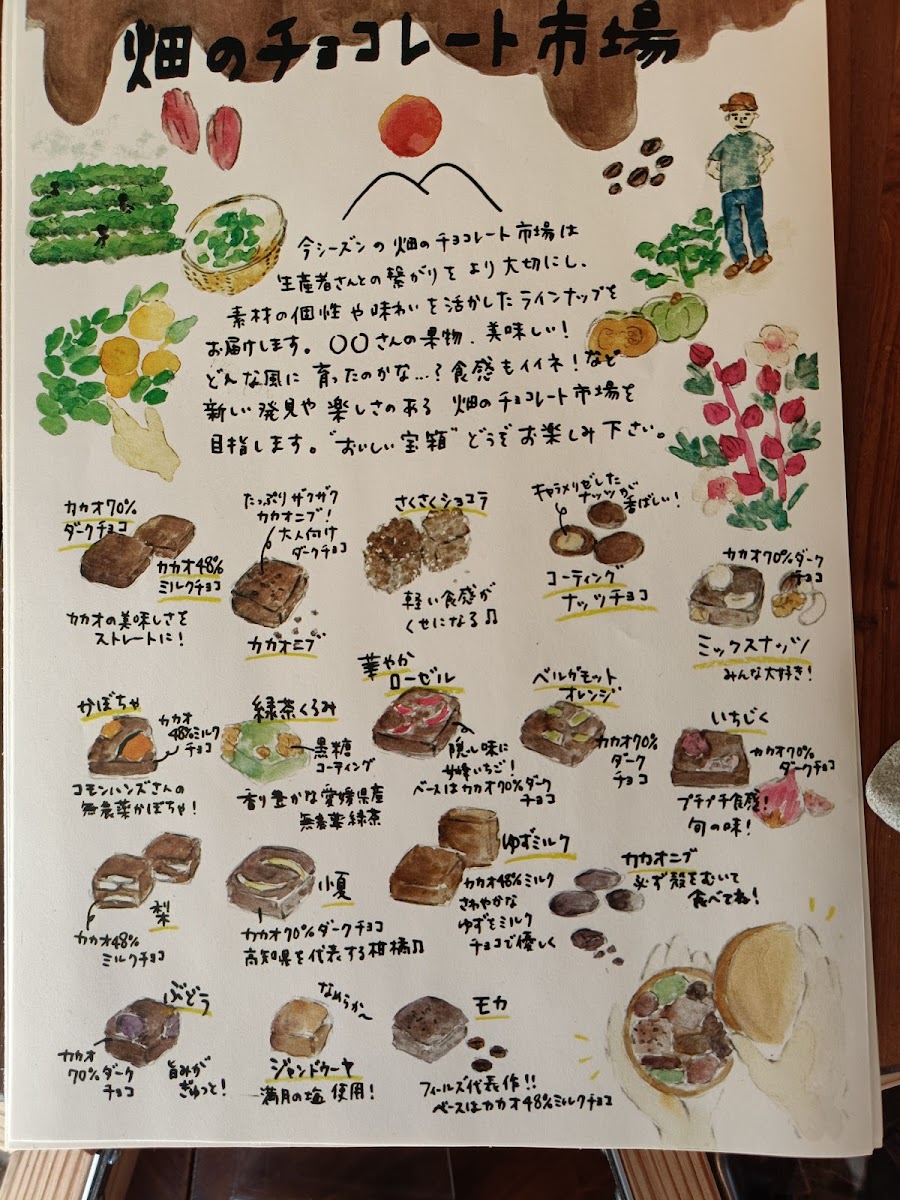 畑のチョコレート市場
今シーズンの畑のチョコレート市場は
生産者さんとの繋がりをより大切にし、
素材の個性や味わいを活かしたラインナップを
お届けします。〇〇さんの果物、美味しい!
どんな風に育ったのかな…?食感もイイネ!など
新しい発見や楽しさのある 畑のチョコレート市場を
目指します。"おいしい宝箱"どうぞお楽しみ下さい。
カカオ70%
ダークチョコ
カカオ48%
ミルクチョコ
カカオの美味しさを
ストレートに!
たっぷりザクザク
カカオニブ!
大人向け
ダークチョコ
カカオニブ
さくさくショコラ
軽い食感が
くせになる♫
キャラメリゼした
ナッツが
香ばしい!
コーティング
ナッツチョコ
カカオ70%ダーク
チョコ
ミックスナッツ
みんな大好き!
かぼちゃ
カカオ
48%ミルク
チョコ
コモンハンズさんの
無農薬かぼちゃ!
緑茶くるみ
黒糖
コーティング
香り豊かな愛媛県産
無農薬緑茶
華やか
ローゼル
隠し味に
甘酸いちご!
ベースはカカオ70%ダーク
チョコ
ベルガモット
オレンジ
カカオ70%
ダーク
チョコ
いちじく
カカオ70%
ダークチョコ
プチプチ食感!
旬の味!
梨
カカオ48%
ミルクチョコ
小夏
カカオ70%ダークチョコ
高知県を代表する柑橘♫
ゆずミルク
カカオ48%ミルク
さわやかな
ゆずをミルク
チョコで優しく
カカオニブ
必ず殻をむいて
食べてね!
ぶどう
カカオ
70%ダーク
チョコ
旨みが
ぎゅっと!
なめらか〜
ジャンドゥーヤ
満月の塩使用!
モカ
フィールズ代表作!!
ベースはカカオ48%ミルクチョコ